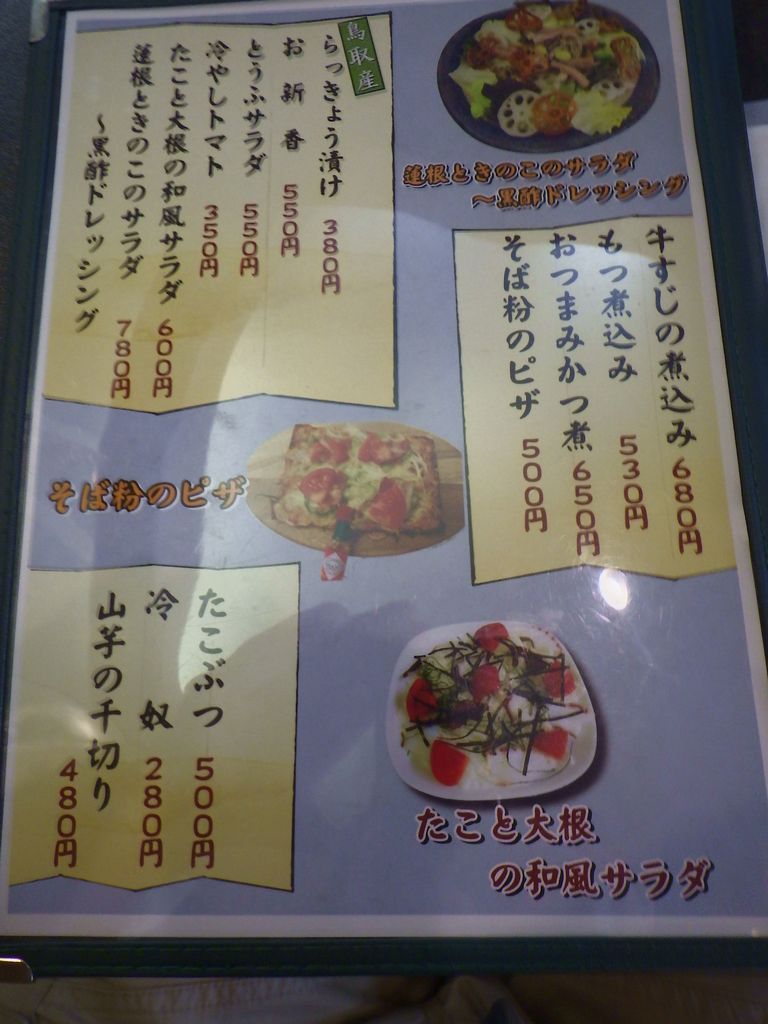 蓮根ときのこのサラダ
～黒酢ドレッシング
牛すじの煮込み 680円
もつ煮込み 530円
おつまみかつ煮 650円
そば粉のピザ 500円
鳥取産
らっきょう漬け 380円
お新香 550円
とうふサラダ 550円
冷やしトマト 350円
たこと大根の和風サラダ 600円
蓮根ときのこのサラダ 780円
～黒酢ドレッシング
そば粉のピザ
たこぶつ 500円
冷奴 280円
山芋の千切り 480円
たこと大根
の和風サラダ